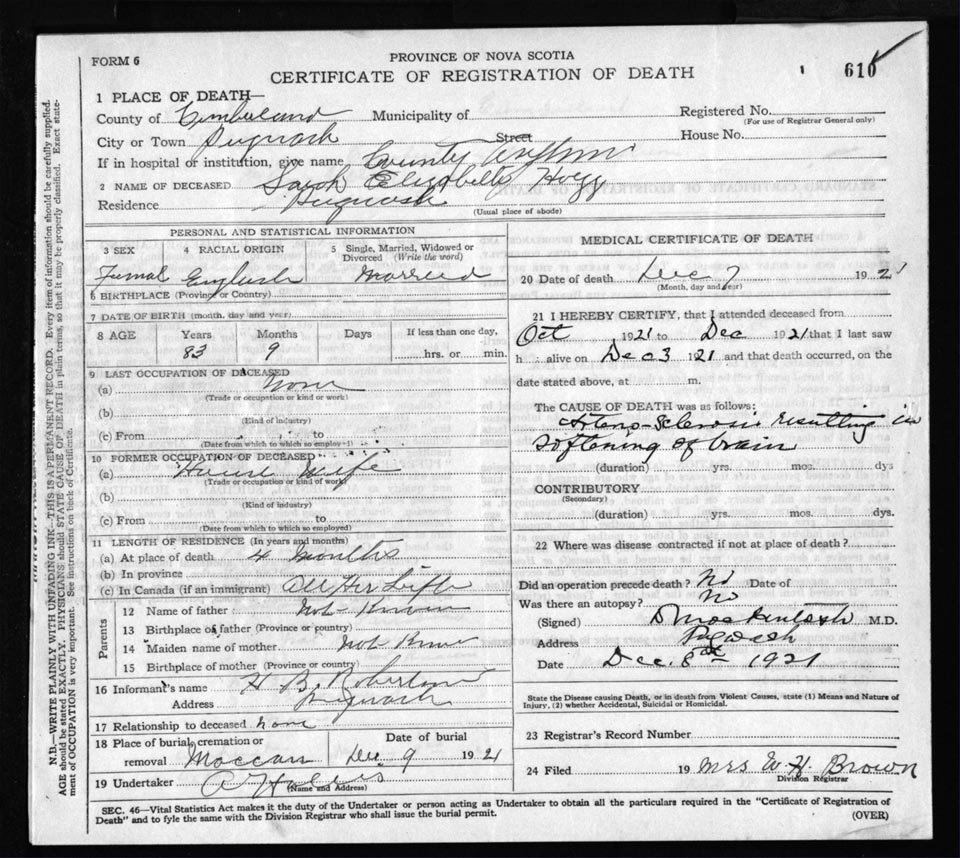 FORM 6
PROVINCE OF NOVA SCOTIA
CERTIFICATE OF REGISTRATION OF DEATH
610
1 PLACE OF DEATH—
County of Cumberland Municipality of
Registered No.
(For use of Registrar General only)
City or Town Pugwash Street
House No.
If in hospital or institution, give name County Asylum
2 NAME OF DECEASED Sarah Elizabeth Hogg
Residence Pugwash
(Usual place of abode)
PERSONAL AND STATISTICAL INFORMATION
3 SEX 4 RACIAL ORIGIN 5 Single, Married, Widowed or Divorced (Write the word)
Femal English Married
6 BIRTHPLACE (Province or Country)
7 DATE OF BIRTH (month, day and year)
8 AGE Years Months Days If less than one day,
83 9 hrs. or min.
9 LAST OCCUPATION OF DECEASED
(a) None
(Trade or occupation or kind or work)
(b)
(Kind of industry)
(c) From to
(Date from which to which so employed)
10 FORMER OCCUPATION OF DECEASED
(a) House wife
(Trade or occupation or kind of work)
(b)
(Kind of industry)
(c) From to
(Date from which to which so employed)
11 LENGTH OF RESIDENCE (In years and months)
(a) At place of death 4 Months
(b) In province
(c) In Canada (if an immigrant) All Her Life
Parents
12 Name of father Not Known
13 Birthplace of father (Province or country)
14 Maiden name of mother Not Know
15 Birthplace of mother (Province or country)
16 Informant's name H B. Robertson
Address Pugwash
17 Relationship to deceased none
18 Place of burial, cremation or removal Maccan
Date of burial Dec. 9 1921
19 Undertaker
(Name and Address)
MEDICAL CERTIFICATE OF DEATH
20 Date of death Dec 7 1921
(Month, day and year)
21 I HEREBY CERTIFY, that I attended deceased from
Oct 1921 to Dec 1921 that I last saw
h alive on Dec 3 1921 and that death occurred, on the
date stated above, at m.
The CAUSE OF DEATH was as follows:
Arterio-Sclerosis resulting in
Softening of brain
(duration) yrs. mos. dys
CONTRIBUTORY
(Secondary)
(duration) yrs. mos. dys.
22 Where was disease contracted if not at place of death?
Did an operation precede death? No Date of
Was there an autopsy? No
(Signed) M.D.
Address Pugwash
Date Dec. 8th 1921
State the Disease causing Death, or in death from Violent Causes, state (1) Means and Nature of
Injury, (2) whether Accidental, Suicidal or Homicidal.
23 Registrar's Record Number
24 Filed 19 Mrs W. H. Brown
Division Registrar
SEC. 46—Vital Statistics Act makes it the duty of the Undertaker or person acting as Undertaker to obtain all the particulars required in the "Certificate of Registration of
Death" and to fyle the same with the Division Registrar who shall issue the burial permit.
(OVER)
N.B.—WRITE PLAINLY WITH UNFADING INK—THIS IS A PERMANENT RECORD. Every item of information should be carefully supplied.
AGE should be stated EXACTLY. PHYSICIANS should STATE CAUSE OF DEATH in plain terms, so that it may be properly classified. Exact state-
ment of OCCUPATION is very important. See instructions on back of Certificate.